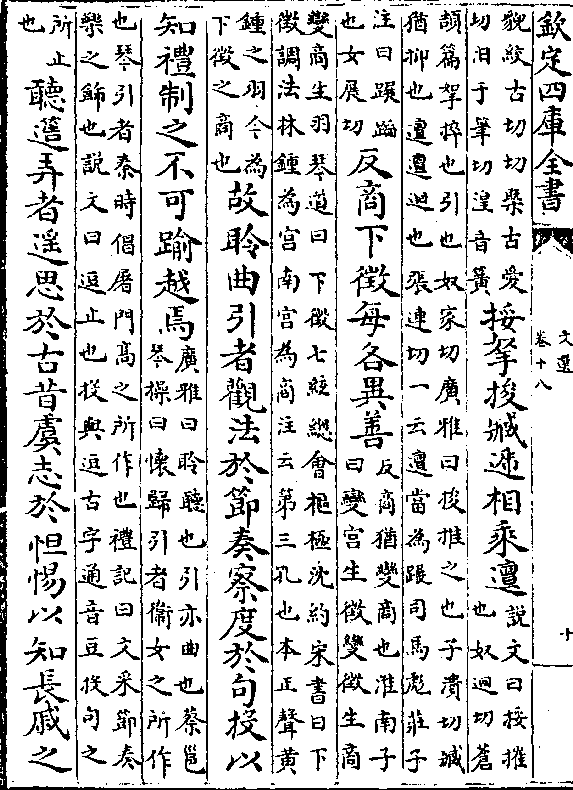 欽定四庫全書
文選
卷十八
十
貌絞古切切槩古愛
切汨于筆切湟音簧
挼拏捘臧逓相乘邅
説文曰挼摧
也奴迴切蒼
頡篇拏捽也引也奴家切廣雅曰捘推之也子潰切臧
猶抑也邅邅迴也張連切一云邅當為蹍司馬彪莊子
注曰蹍蹈
也女展切
反商下徵每各異善
反商猶變商也淮南子
曰變宫生徵變徵生商
變商生羽琴道曰下徵七絃總會樞極沈約宋書曰下
徵調法林鍾為宫南宫為商注云第三孔也本正聲黄
鍾之羽今為
下徵之商也
故聆曲引者觀法於節奏察度於句投以
知禮制之不可踰越焉
廣雅曰聆聽也引亦曲也蔡邕
琴操曰懷歸引者衞女之所作
也琴引者秦時倡屠門髙之所作也禮記曰文采節奏
樂之飾也説文曰逗止也投與逗古字通音豆投句之
所止
也
聽簉弄者遥思於古昔虞志於怛惕以知長戚之